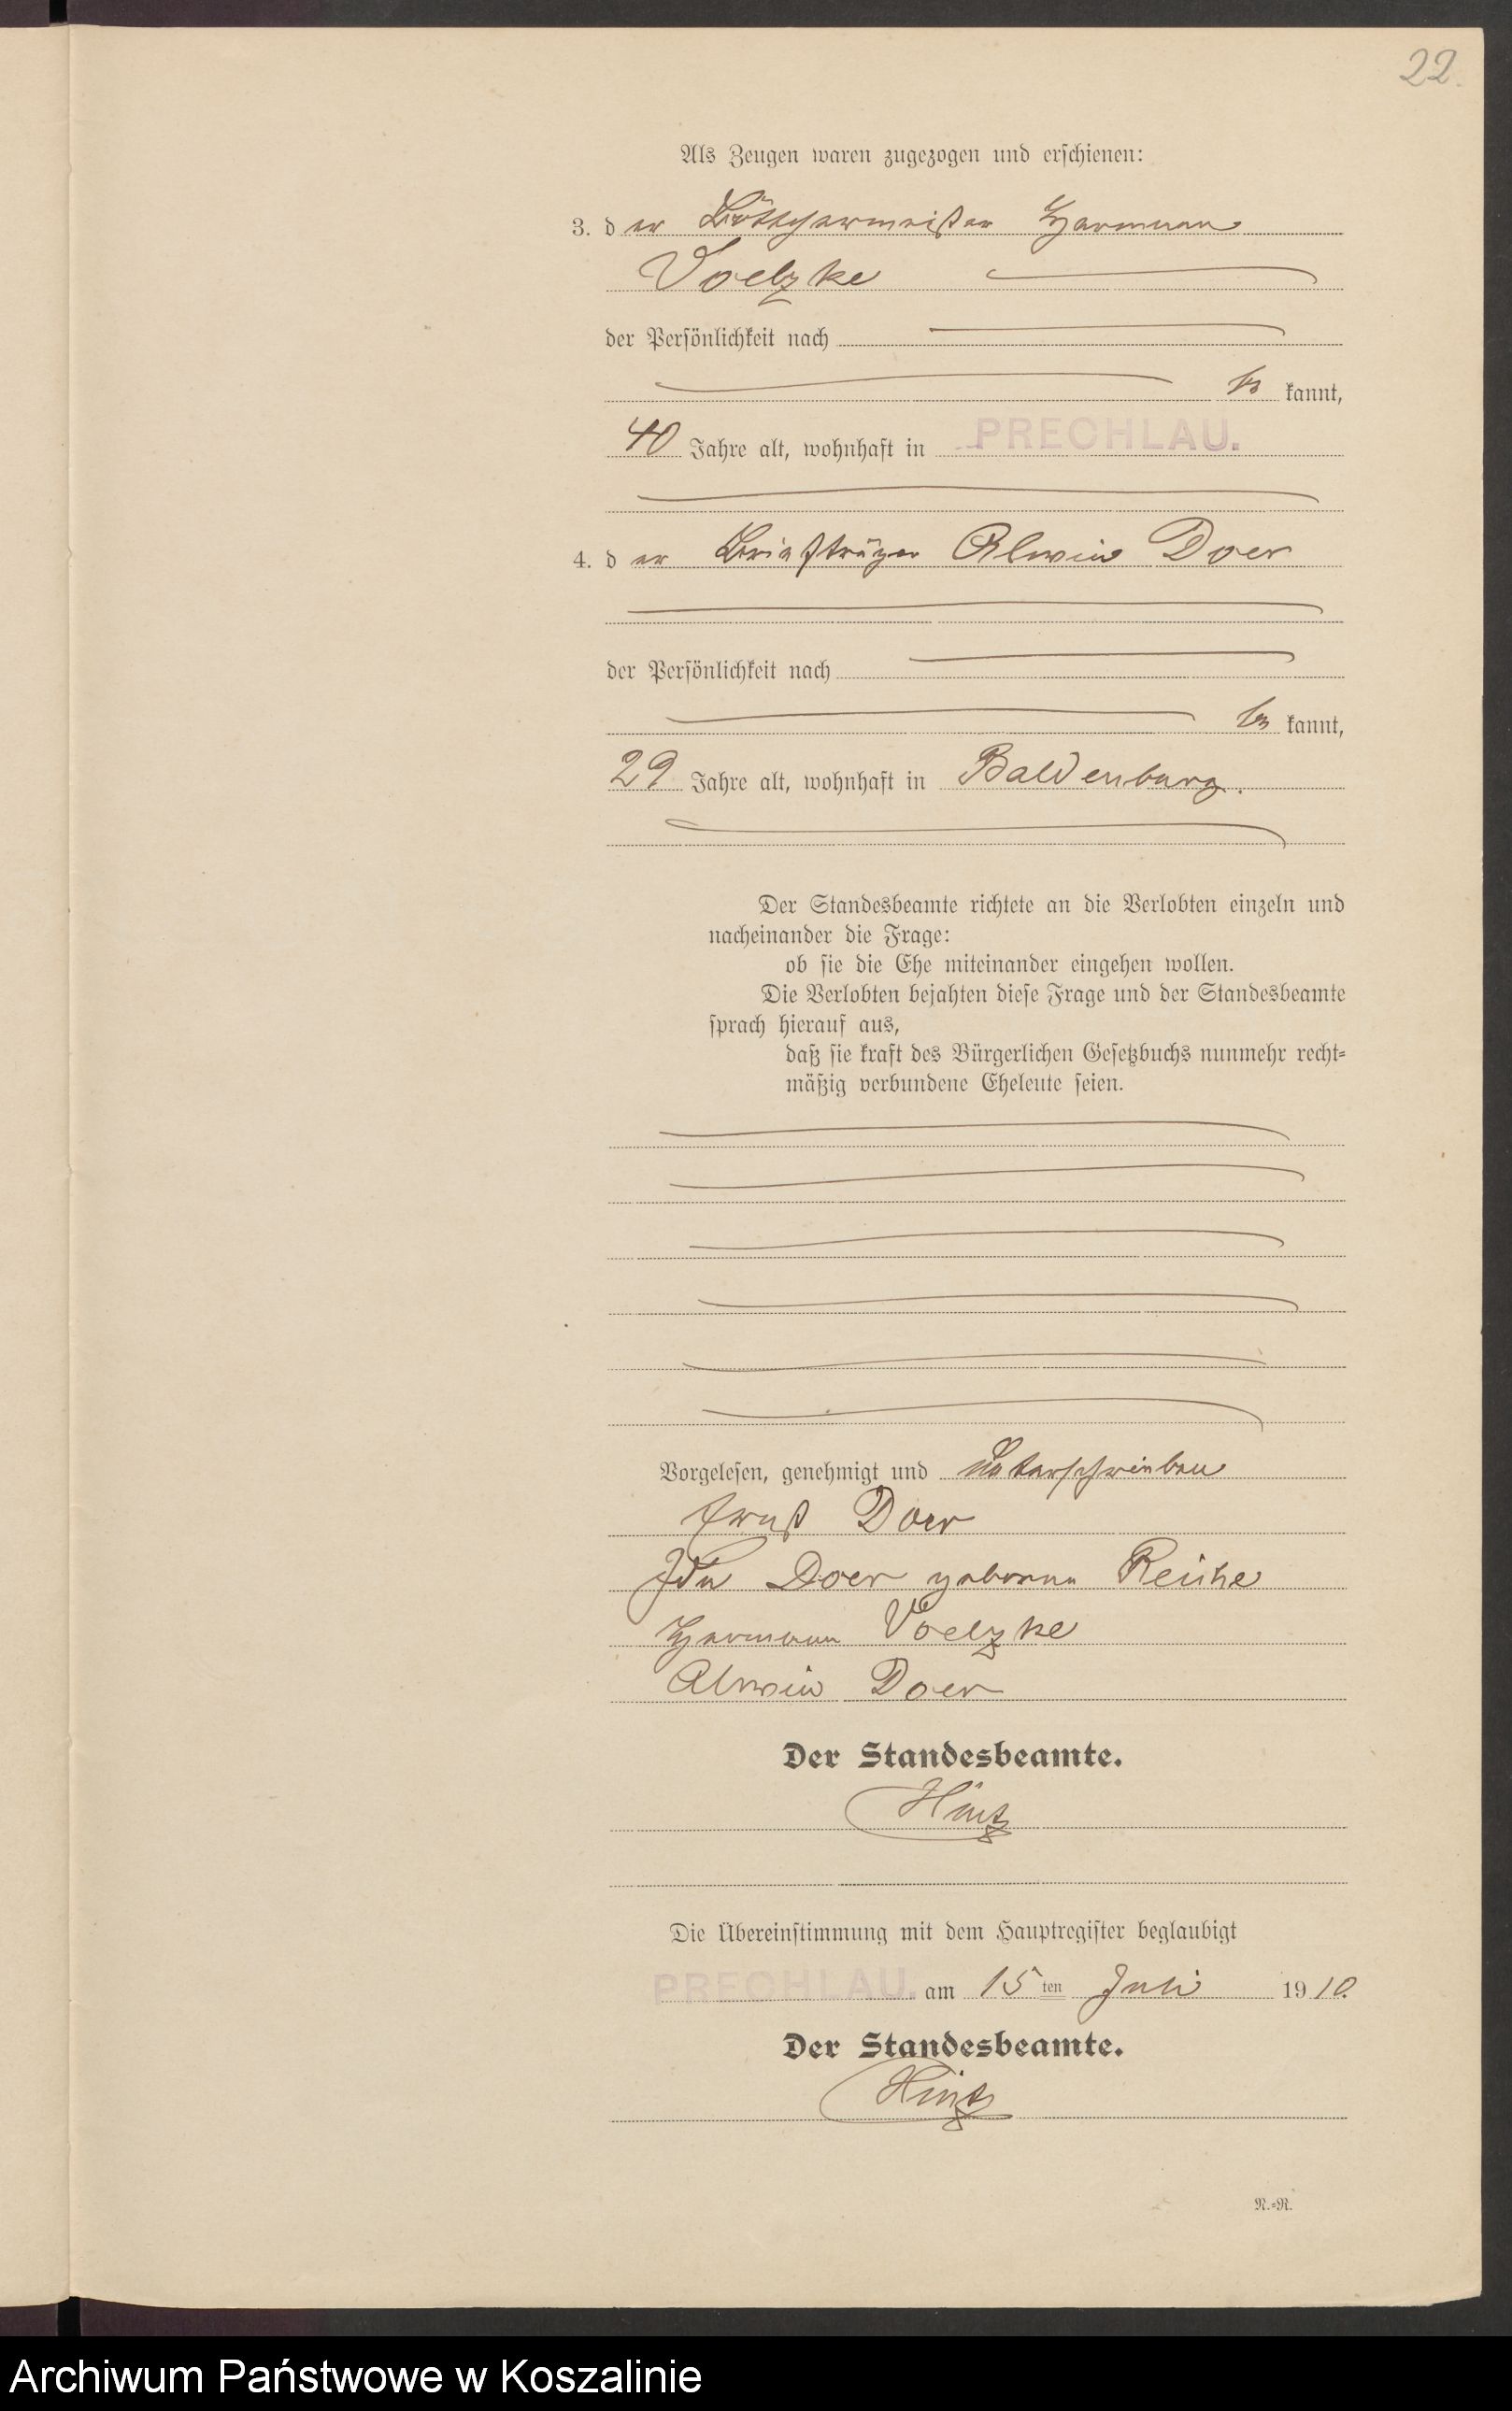 22.
Als Zeugen waren zugezogen und erschienen:
3. d er Böttchermeister Hermann
Voelzke
der Persönlichkeit nach
be kannt,
40 Jahre alt, wohnhaft in PRECHLAU.
4. d er Briefträger Alwin Doer
der Persönlichkeit nach
be kannt,
29 Jahre alt, wohnhaft in Baldenburg.
Der Standesbeamte richtete an die Verlobten einzeln und
nacheinander die Frage:
ob sie die Ehe miteinander eingehen wollen.
Die Verlobten bejahten diese Frage und der Standesbeamte
sprach hierauf aus,
daß sie kraft des Bürgerlichen Gesetzbuchs nunmehr recht-
mäßig verbundene Eheleute seien.
Vorgelesen, genehmigt und unterschrieben
Ernst Doer
Ida Doer geborene
Hermann Voelzke
Alwin Doer
Der Standesbeamte.
Hintz
Die Übereinstimmung mit dem Hauptregister beglaubigt
PRECHLAU. am 15 ten Juli 1910.
Der Standesbeamte.
Hintz
N.-R.
Archiwum Państwowe w Koszalinie